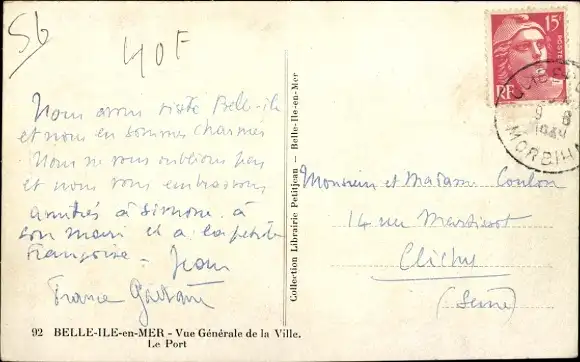 56
40F
Nous avons visité Belle-ile
et nous en sommes charmés
Nous ne vous oublions pas
et nous vous embrassons
amitiés à Simone. à
son mari et a la petite
Françoise - Jean
France
92 BELLE-ILE-en-MER - Vue Générale de la Ville.
Le Port
Collection Librairie Petitjean — Belle-Ile-en-Mer
15F
POSTES
RF
9 8
MORBIHAN
Monsieur et Madame Coulon
14 rue
Clichy
(Seine)